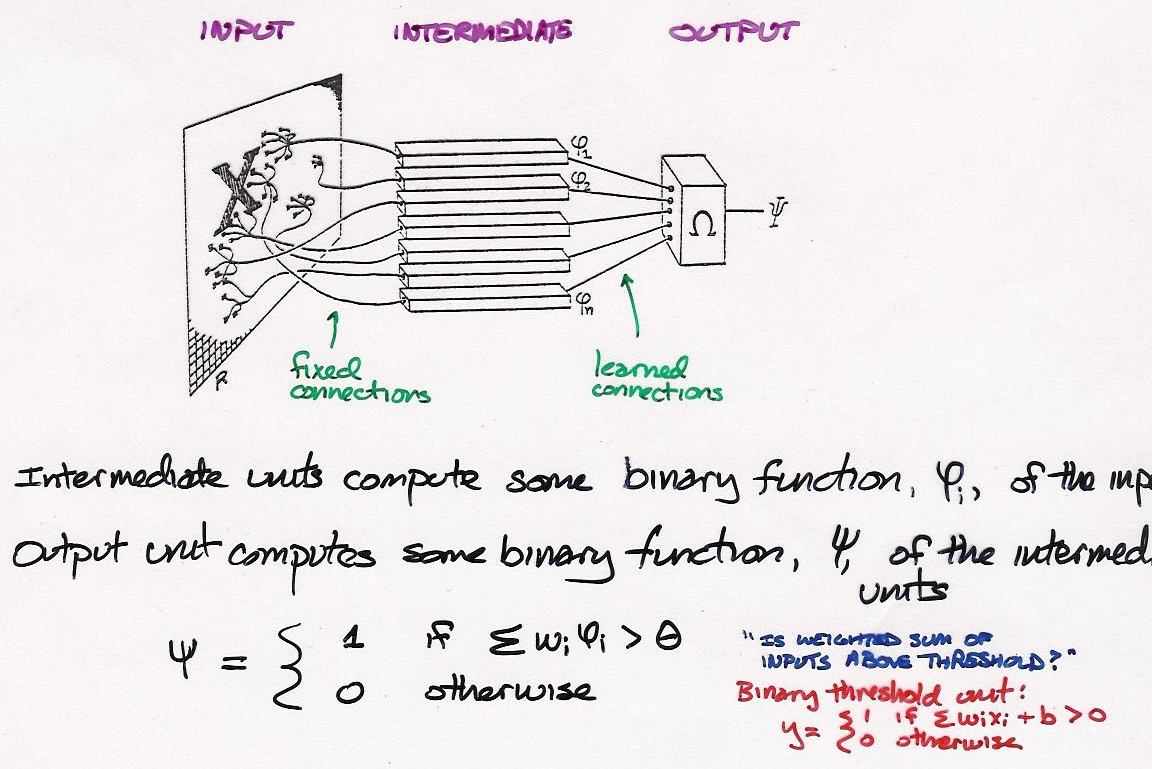 INPUT INTERMEDIATE OUTPUT
φ1
φ2
Ω
Ψ
φn
R
fixed
connections
learned
connections
Intermediate units compute some binary function, φi, of the inp
Output unit computes some binary function, Ψ, of the intermed
units
Ψ = { 1 if Σ wi φi > θ
0 otherwise
"IS WEIGHTED SUM OF
INPUTS ABOVE THRESHOLD?"
Binary threshold unit:
y = { 1 if Σ wi xi + b > 0
0 otherwise